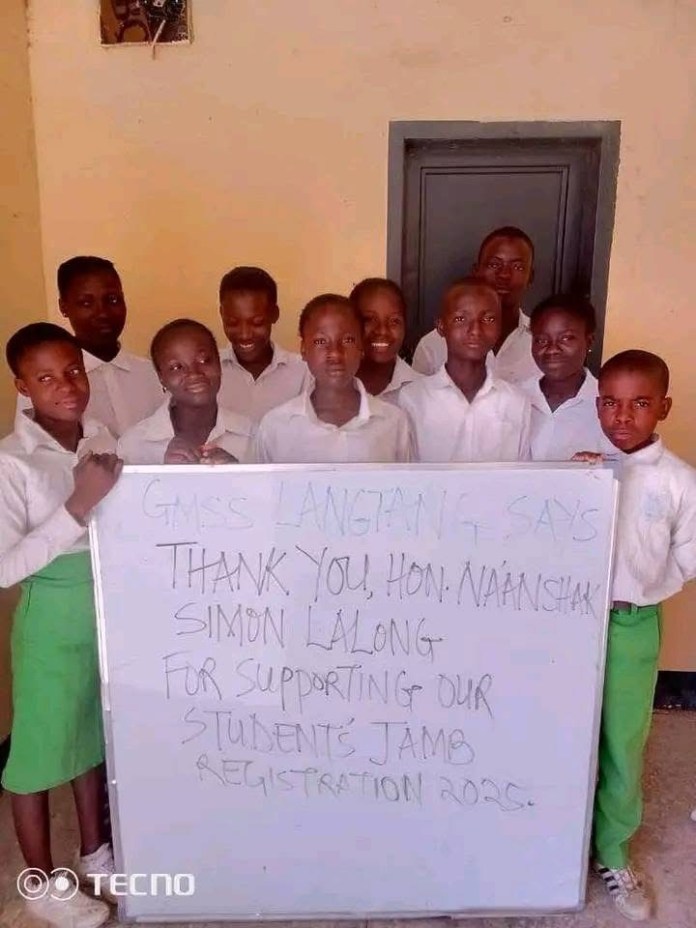 GMSS LANGTANG SAYS
THANK YOU, HON. NA'ANSHAK
SIMON LALONG
FOR SUPPORTING OUR
STUDENT'S JAMB
REGISTRATION 2025.
TECNO